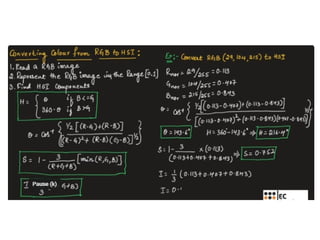 Converting Colour from RGB to HSI :
1. Read a RGB image
2. Represent the RGB image in the Range [0,1]
3. Find HSI Components
H = { θ if B<=G
360-θ if B>G
θ = Cos⁻¹ { ½[(R-G)+(R-B)] / [(R-G)²+(R-B)(G-B)]^½ }
S = 1 - 3/(R+G+B) [min(R,G,B)]
I
Pause (k)
G+B)
3
Ex:- Convert RGB (29, 104, 215) to HSI
Rnor = 29/255 = 0.113
Gnor = 104/255 = 0.407
Bnor = 215/255 = 0.843
θ = Cos⁻¹ { ½[(0.113-0.407)+(0.113-0.843)] / [(0.113-0.407)²+(0.113-0.843)(0.407-0.843)]^½ }
θ = 143.6° H = 360-143.6° ⇒ H = 216.4°
S = 1 - 3/(0.113+0.407+0.843) × (0.113) ⇒ S = 0.752
I = 1/3 (0.113+0.407+0.843)
I = 0.
EC